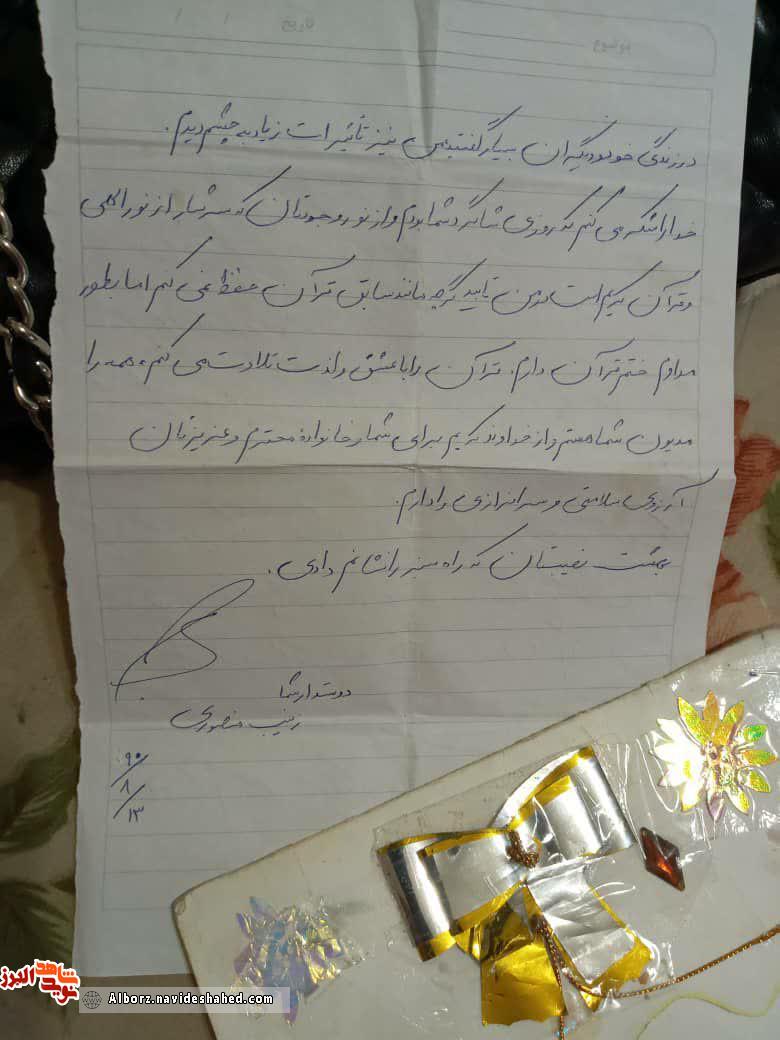 موضوع
تاریخ / /
در زندگی خود و دیگران بسیار گفتید من نیز تأثیرات زیاد به چشم دیدم.
خدا را شکر می کنم که روزی شاگرد شما بودم و از نور وجودتان که سرشار از نور الهی
و قرآن کریم است گرچه مانند سابق قرآن حفظ نمی کنم اما بطور
مداوم ختم قرآن دارم. قرآن را با عشق و لذت تلاوت می کنم و همه را
مدیون شما هستم و از خداوند کریم برای شما و خانواده محترم و عزیزتان
آرزوی سلامتی و سرافرازی را دارم.
بهشت نصیبتان که راه سبز را نشانم دادی.
دوستدار شما
زینب منصوری
۹۰/۸/۱۳
نوید شاهد البرز
Alborz.navideshahed.com